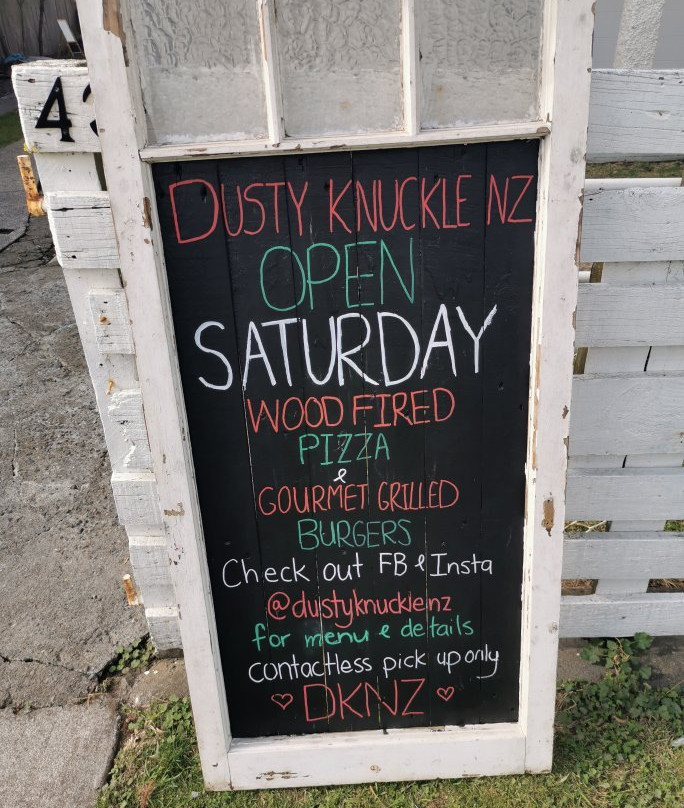 4
DUSTY KNUCKLE NZ
OPEN
SATURDAY
WOOD FIRED
PIZZA
&
GOURMET GRILLED
BURGERS
Check out FB & Insta
@dustyknucklenz
for menu & details
contactless pick up only
♡ DKNZ ♡